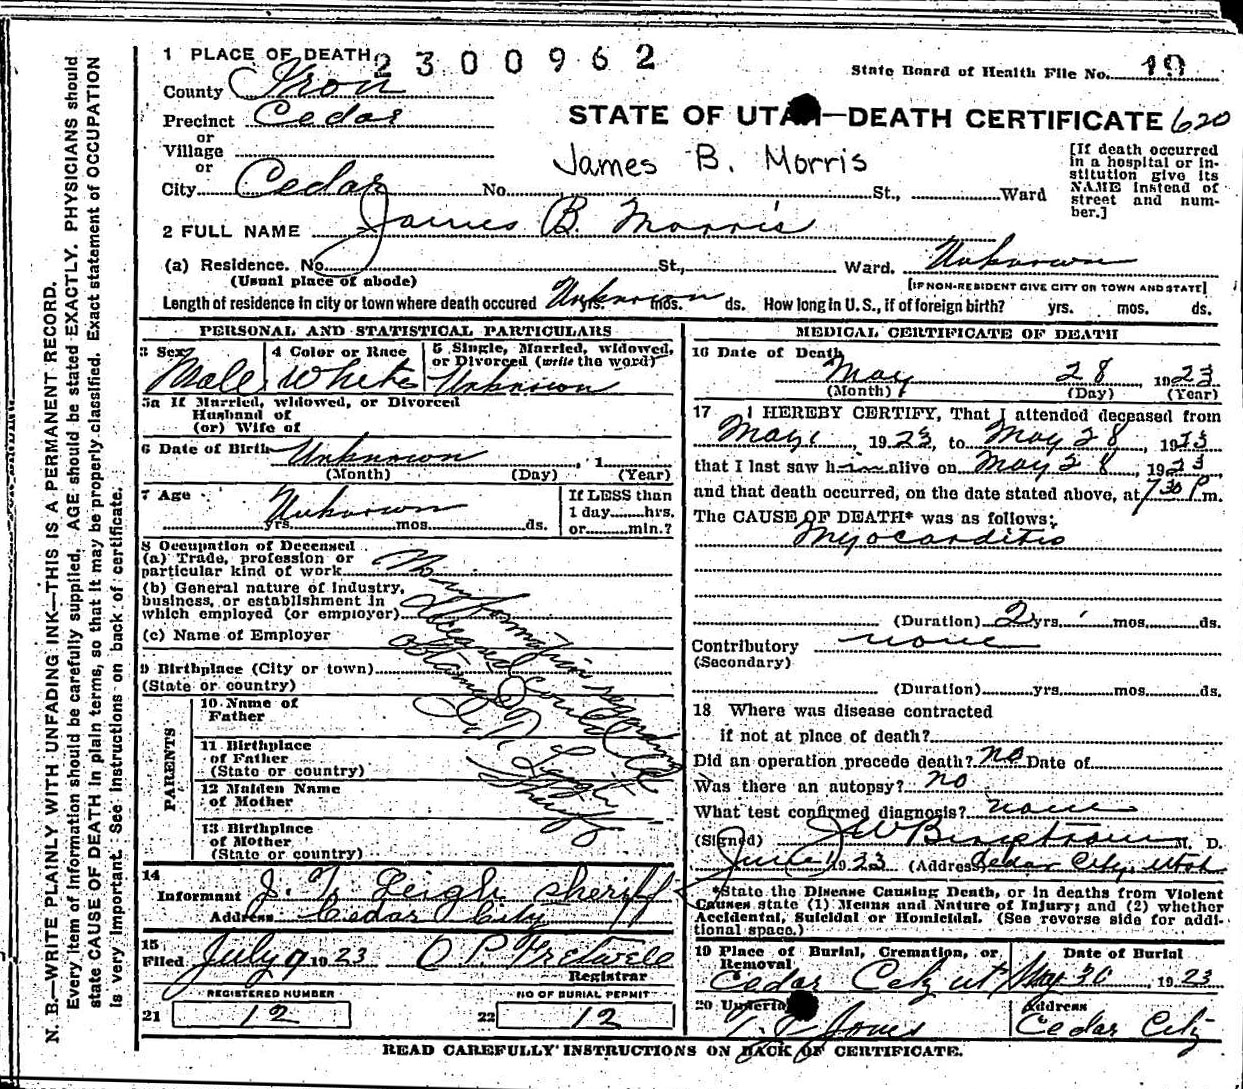 1 PLACE OF DEATH 2300962
State Board of Health File No. 19
County Iron
STATE OF UTAH—DEATH CERTIFICATE 620
Precinct Cedar
or
Village
or
James B. Morris
City Cedar No. St., Ward
[If death occurred
in a hospital or in-
stitution give its
NAME instead of
street and num-
ber.]
2 FULL NAME James B. Morris
(a) Residence. No. St., Ward. Unknown
(Usual place of abode)
[IF NON-RESIDENT GIVE CITY OR TOWN AND STATE]
Length of residence in city or town where death occured Unknown yrs. mos. ds. How long in U.S., if of foreign birth? yrs. mos. ds.
PERSONAL AND STATISTICAL PARTICULARS
3 Sex
Male
4 Color or Race
White
5 Single, Married, widowed,
or Divorced (write the word)
Unknown
5a If Married, widowed, or Divorced
Husband of
(or) Wife of
6 Date of Birth Unknown , 1
(Month) (Day) (Year)
7 Age Unknown
yrs. mos. ds.
If LESS than
1 day hrs.
or min.?
8 Occupation of Deceased
(a) Trade, profession or
particular kind of work
(b) General nature of Industry,
business, or establishment in
which employed (or employer)
(c) Name of Employer
9 Birthplace (City or town)
(State or country)
No information regarding
deceased could be
obtained
Leigh
Sheriff
PARENTS
10 Name of
Father
11 Birthplace
of Father
(State or country)
12 Maiden Name
of Mother
13 Birthplace
of Mother
(State or country)
14
Informant J. T. Leigh sheriff
Address Cedar City
15
Filed July 9 1923 O P Fretwell
Registrar
REGISTERED NUMBER
21 12
NO OF BURIAL PERMIT
22 12
MEDICAL CERTIFICATE OF DEATH
16 Date of Death
May 28, 1923
(Month) (Day) (Year)
17 I HEREBY CERTIFY, That I attended deceased from
May 1, 1923, to May 28 1923
that I last saw h im alive on May 28, 1923
and that death occurred, on the date stated above, at 7 30 P m.
The CAUSE OF DEATH* was as follows:
Myocarditis
(Duration) 2 yrs. mos. ds.
Contributory none
(Secondary)
(Duration) yrs. mos. ds.
18 Where was disease contracted
if not at place of death?
Did an operation precede death? no Date of
Was there an autopsy? no
What test confirmed diagnosis? none
(Signed) J W Bergstrom M. D.
June 1 1923 (Address) Cedar City, Utah
*State the Disease Causing Death, or in deaths from Violent
Causes state (1) Means and Nature of Injury; and (2) whether
Accidental, Suicidal or Homicidal. (See reverse side for addi-
tional space.)
19 Place of Burial, Cremation, or
Removal
Cedar City ut
Date of Burial
May 30, 1923
20 Undertaker
T. T. Jones
Address
Cedar City
READ CAREFULLY INSTRUCTIONS ON BACK OF CERTIFICATE.
N. B.—WRITE PLAINLY WITH UNFADING INK—THIS IS A PERMANENT RECORD.
Every item of information should be carefully supplied. AGE should be stated EXACTLY. PHYSICIANS should
state CAUSE OF DEATH in plain terms, so that it may be properly classified. Exact statement of OCCUPATION
is very important. See Instructions on back of certificate.